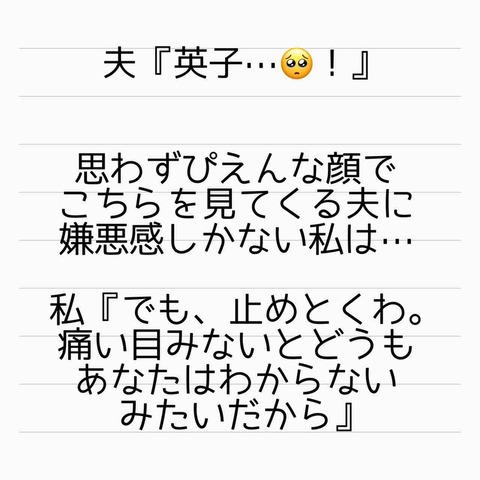 夫『英子…🥺！』
思わずぴえんな顔で
こちらを見てくる夫に
嫌悪感しかない私は…
私『でも、止めとくわ。
痛い目みないとどうも
あなたはわからない
みたいだから』